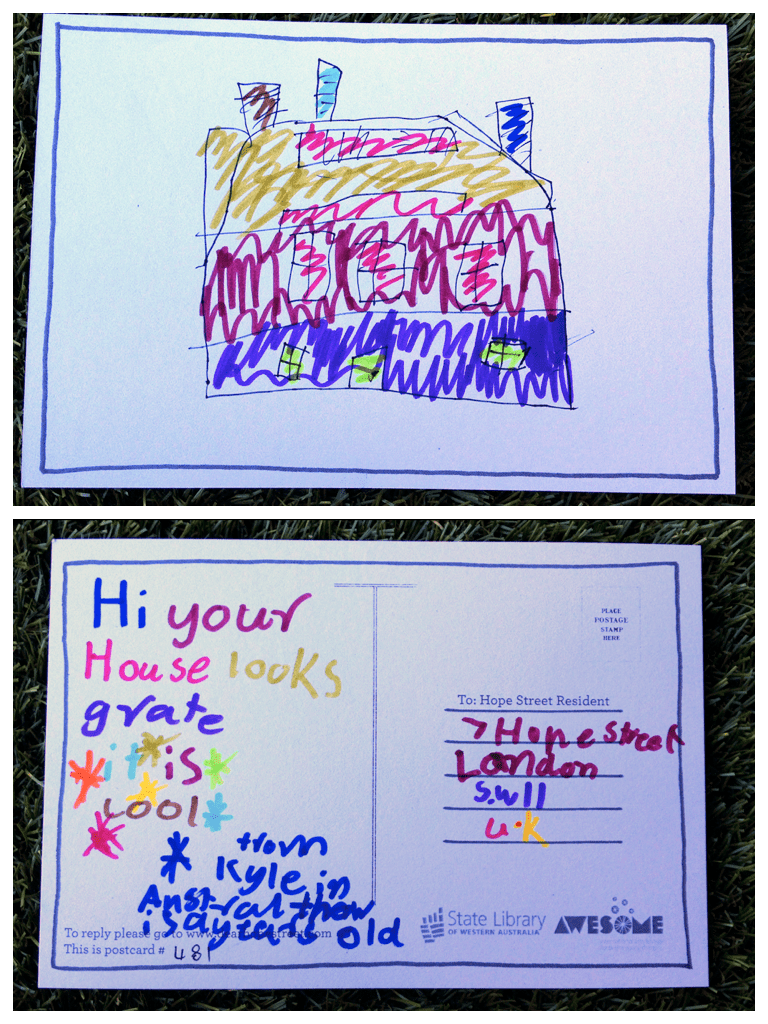 Hi your
House looks
grate
it is
cool
from
Kyle in
old
To reply please go to www.
This is postcard # 48
PLACE
POSTAGE
STAMP
HERE
To: Hope Street Resident
7 Hope street
London
S.W11
U.K
State Library
OF WESTERN AUSTRALIA
AWESOME